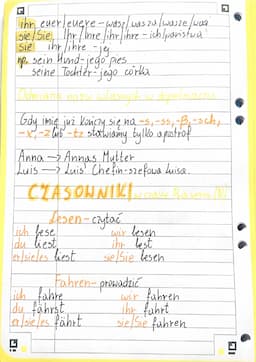 ihr euer/euere - wasz/wasza/wasze/wasi
sie/Sie Ihr/Ihre/ihr/ihre - ich/państwa
Sie ihr/ihre - jej
np. sein Hund - jego pies
seine Tochter - jego córka
Odmiana nazw własnych w dopełniaczu
Gdy imię już kończy się na -s, -ss, -ß, -sch,
-x, -z lub -tz stawiamy tylko apostrof
Anna → Annas Mutter
Luis → Luis' Chefin - szefowa Luisa.
CZASOWNIKI w czasie Präsens
Lesen - czytać
ich lese wir lesen
du liest ihr lest
er/sie/es liest sie/Sie lesen
Fahren - prowadzić
ich fahre wir fahren
du fährst ihr fahrt
er/sie/es fährt sie/Sie fahren